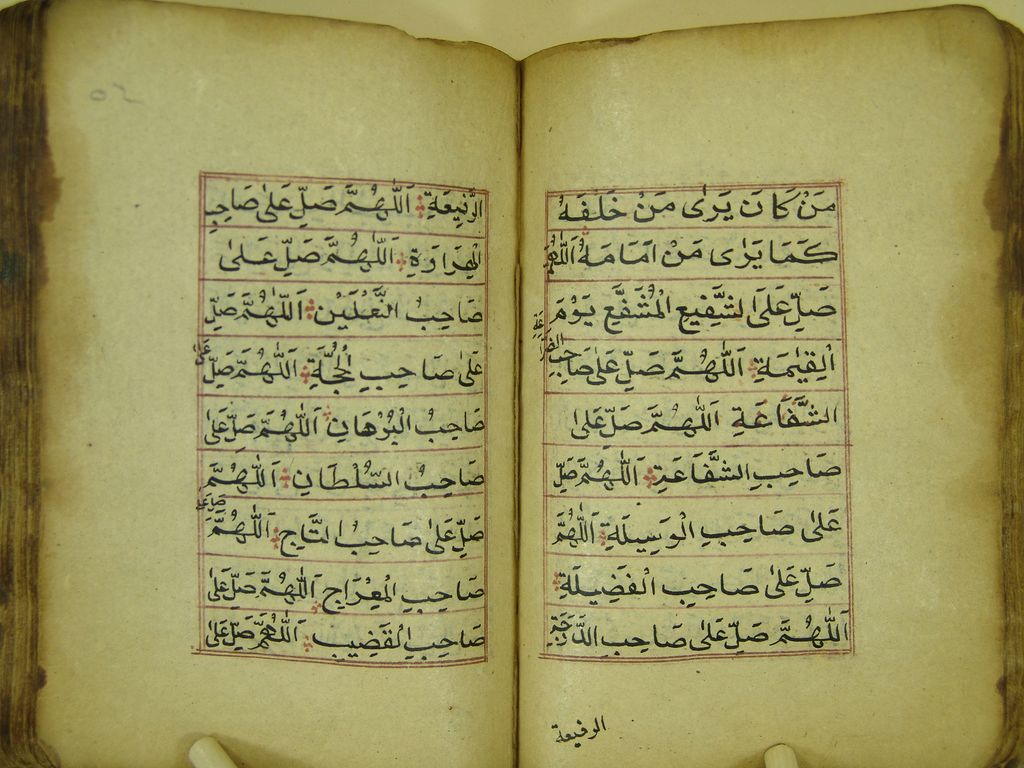 مَنْ كَانَ يَرٰى مَنْ خَلْفَهُ
كَمَا يَرٰى مَنْ اَمَامَهُ اَللّٰهُمَّ
صَلِّ عَلَى الشَّفِيْعِ الْمُشَفَّعِ يَوْمَ
الْقِيٰمَةِ اَللّٰهُمَّ صَلِّ عَلٰى صَاحِبِ الضَّرَاعَةِ
الشَّفَاعَةِ اَللّٰهُمَّ صَلِّ عَلٰى
صَاحِبِ الشَّفَاعَةِ اَللّٰهُمَّ صَلِّ
عَلٰى صَاحِبِ الْوَسِيْلَةِ اَللّٰهُمَّ
صَلِّ عَلٰى صَاحِبِ الْفَضِيْلَةِ
اَللّٰهُمَّ صَلِّ عَلٰى صَاحِبِ الدَّرَجَةِ
الرفيعة
الرَّفِيْعَةِ اَللّٰهُمَّ صَلِّ عَلٰى صَاحِبِ
الْهِرَاوَةِ اَللّٰهُمَّ صَلِّ عَلٰى
صَاحِبِ النَّعْلَيْنِ اَللّٰهُمَّ صَلِّ
عَلٰى صَاحِبِ الْحُجَّةِ اَللّٰهُمَّ صَلِّ عَلٰى
صَاحِبِ الْبُرْهَانِ اَللّٰهُمَّ صَلِّ عَلٰى
صَاحِبِ السُّلْطَانِ اَللّٰهُمَّ
صَلِّ عَلٰى صَاحِبِ التَّاجِ اَللّٰهُمَّ صَلِّ عَلٰى
صَاحِبِ الْمِعْرَاجِ اَللّٰهُمَّ صَلِّ عَلٰى
صَاحِبِ الْقَضِيْبِ اَللّٰهُمَّ صَلِّ عَلٰى